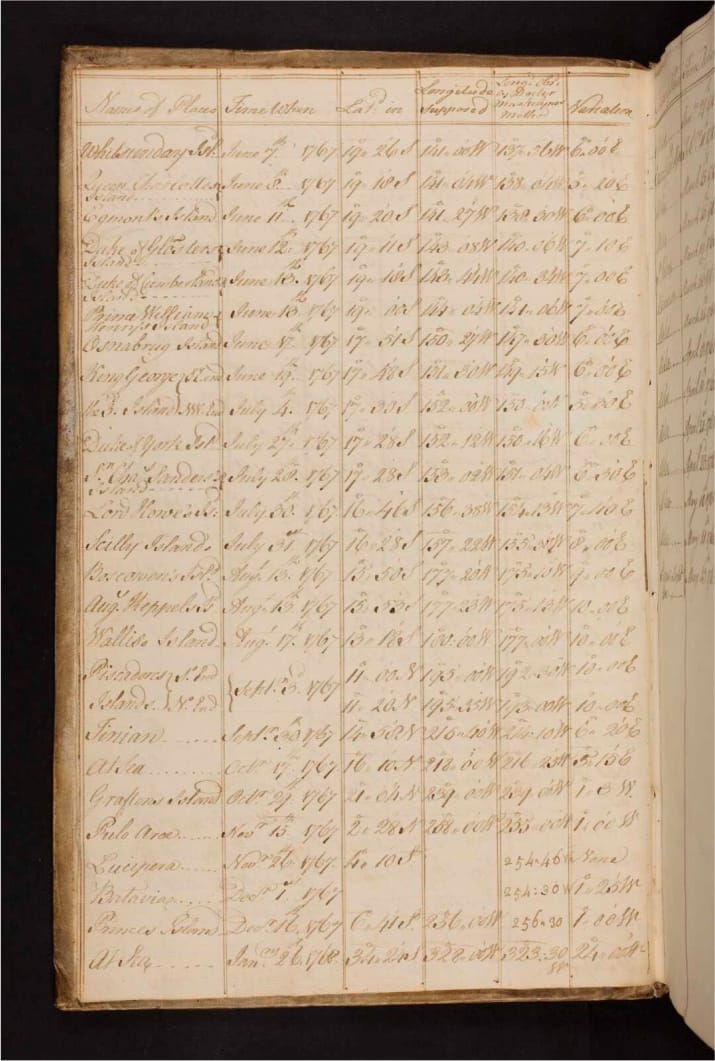 Names of Places Time When Latd. in Longitude Supposed Longi. Obs. as Doctor Masculynes Method Variation
Whitsunday Isld. June 7th. 1767 19° 26 S 141° 00 W 137° 56 W 6° 00 E
Queen Charlottes Island June 8th. 1767 19° 18 S 141° 04 W 138° 04 W 5° 20 E
Egmont Island June 11th 1767 19° 20 S 141° 27 W 138° 30 W 6° 00 E
Duke of Glosters Island June 12th. 1767 19° 11 S 143° 08 W 140° 06 W 7° 10 E
Duke of Cumberland Island June 13th. 1767 19° 18 S 143° 44 W 140° 34 W 7° 00 E
Prince William Henrys Island June 13th. 1767 19° 00 S 144° 04 W 141° 06 W 7° 00 E
Osnabrug Island June 17th. 1767 17° 51 S 150° 27 W 147° 30 W 6° 00 E
King George SE. end June 19th. 1767 17° 48 S 151° 30 W 149° 15 W 6° 00 E
the 3d. Island NW. End July 4th. 1767 17° 30 S 152° 00 W 150° 00 W 5° 30 E
Duke of York Isld. July 27th. 1767 17° 28 S 152° 12 W 150° 16 W 6° 00 E
Sr. Chas. Sanders's Island July 28th. 1767 17° 28 S 153° 02 W 151° 04 W 6° 30 E
Lord Howe's Is. July 30th. 1767 16° 46 S 156° 38 W 154° 13 W 7° 40 E
Scilly Islands July 31st 1767 16° 28 S 157° 22 W 155° 30 W 8° 00 E
Boscowen's Isld. Augt. 13th. 1767 15° 50 S 177° 20 W 175° 10 W 9° 00 E
Augt. Keppels Is Augt. 13th 1767 15° 53 S 177° 23 W 175° 13 W 10° 00 E
Wallis's Island Augt. 17th. 1767 13° 18 S 180° 00 W 177° 00 W 10° 00 E
Piscadores So. End 11° 00 N 195° 00 W 192° 30 W 10° 00 E
Islands No. End Septr. 3d. 1767 11° 20 N 195° 35 W 193° 00 W 10° 00 E
Tinian Septr. 30th. 1767 14° 58 N 216° 40 W 214° 10 W 6° 20 E
At Sea Octr. 17th. 1767 16° 10 N 218° 00 W 216° 25 W 5° 15 E
Graftons Island Octr. 29th. 1767 21° 04 N 239° 00 W 239° 00 W 1° 3 W
Pulo Aroe Novr. 15th. 1767 2° 28 N 258° 00 W 255° 00 W 1° 00 W
Lucipera Novr. 26th. 1767 4° 10 S 254:46 W None
Batavia Decr. 1st. 1767 254:30 W 1° 25 W
Princes Island Decr. 16th. 1767 6° 41 S 256° 00 W 256:30 1° 00 W
At Sea Janry. 26th. 1768 34° 24 S 328° 00 W 323:30 W 24° 00 W